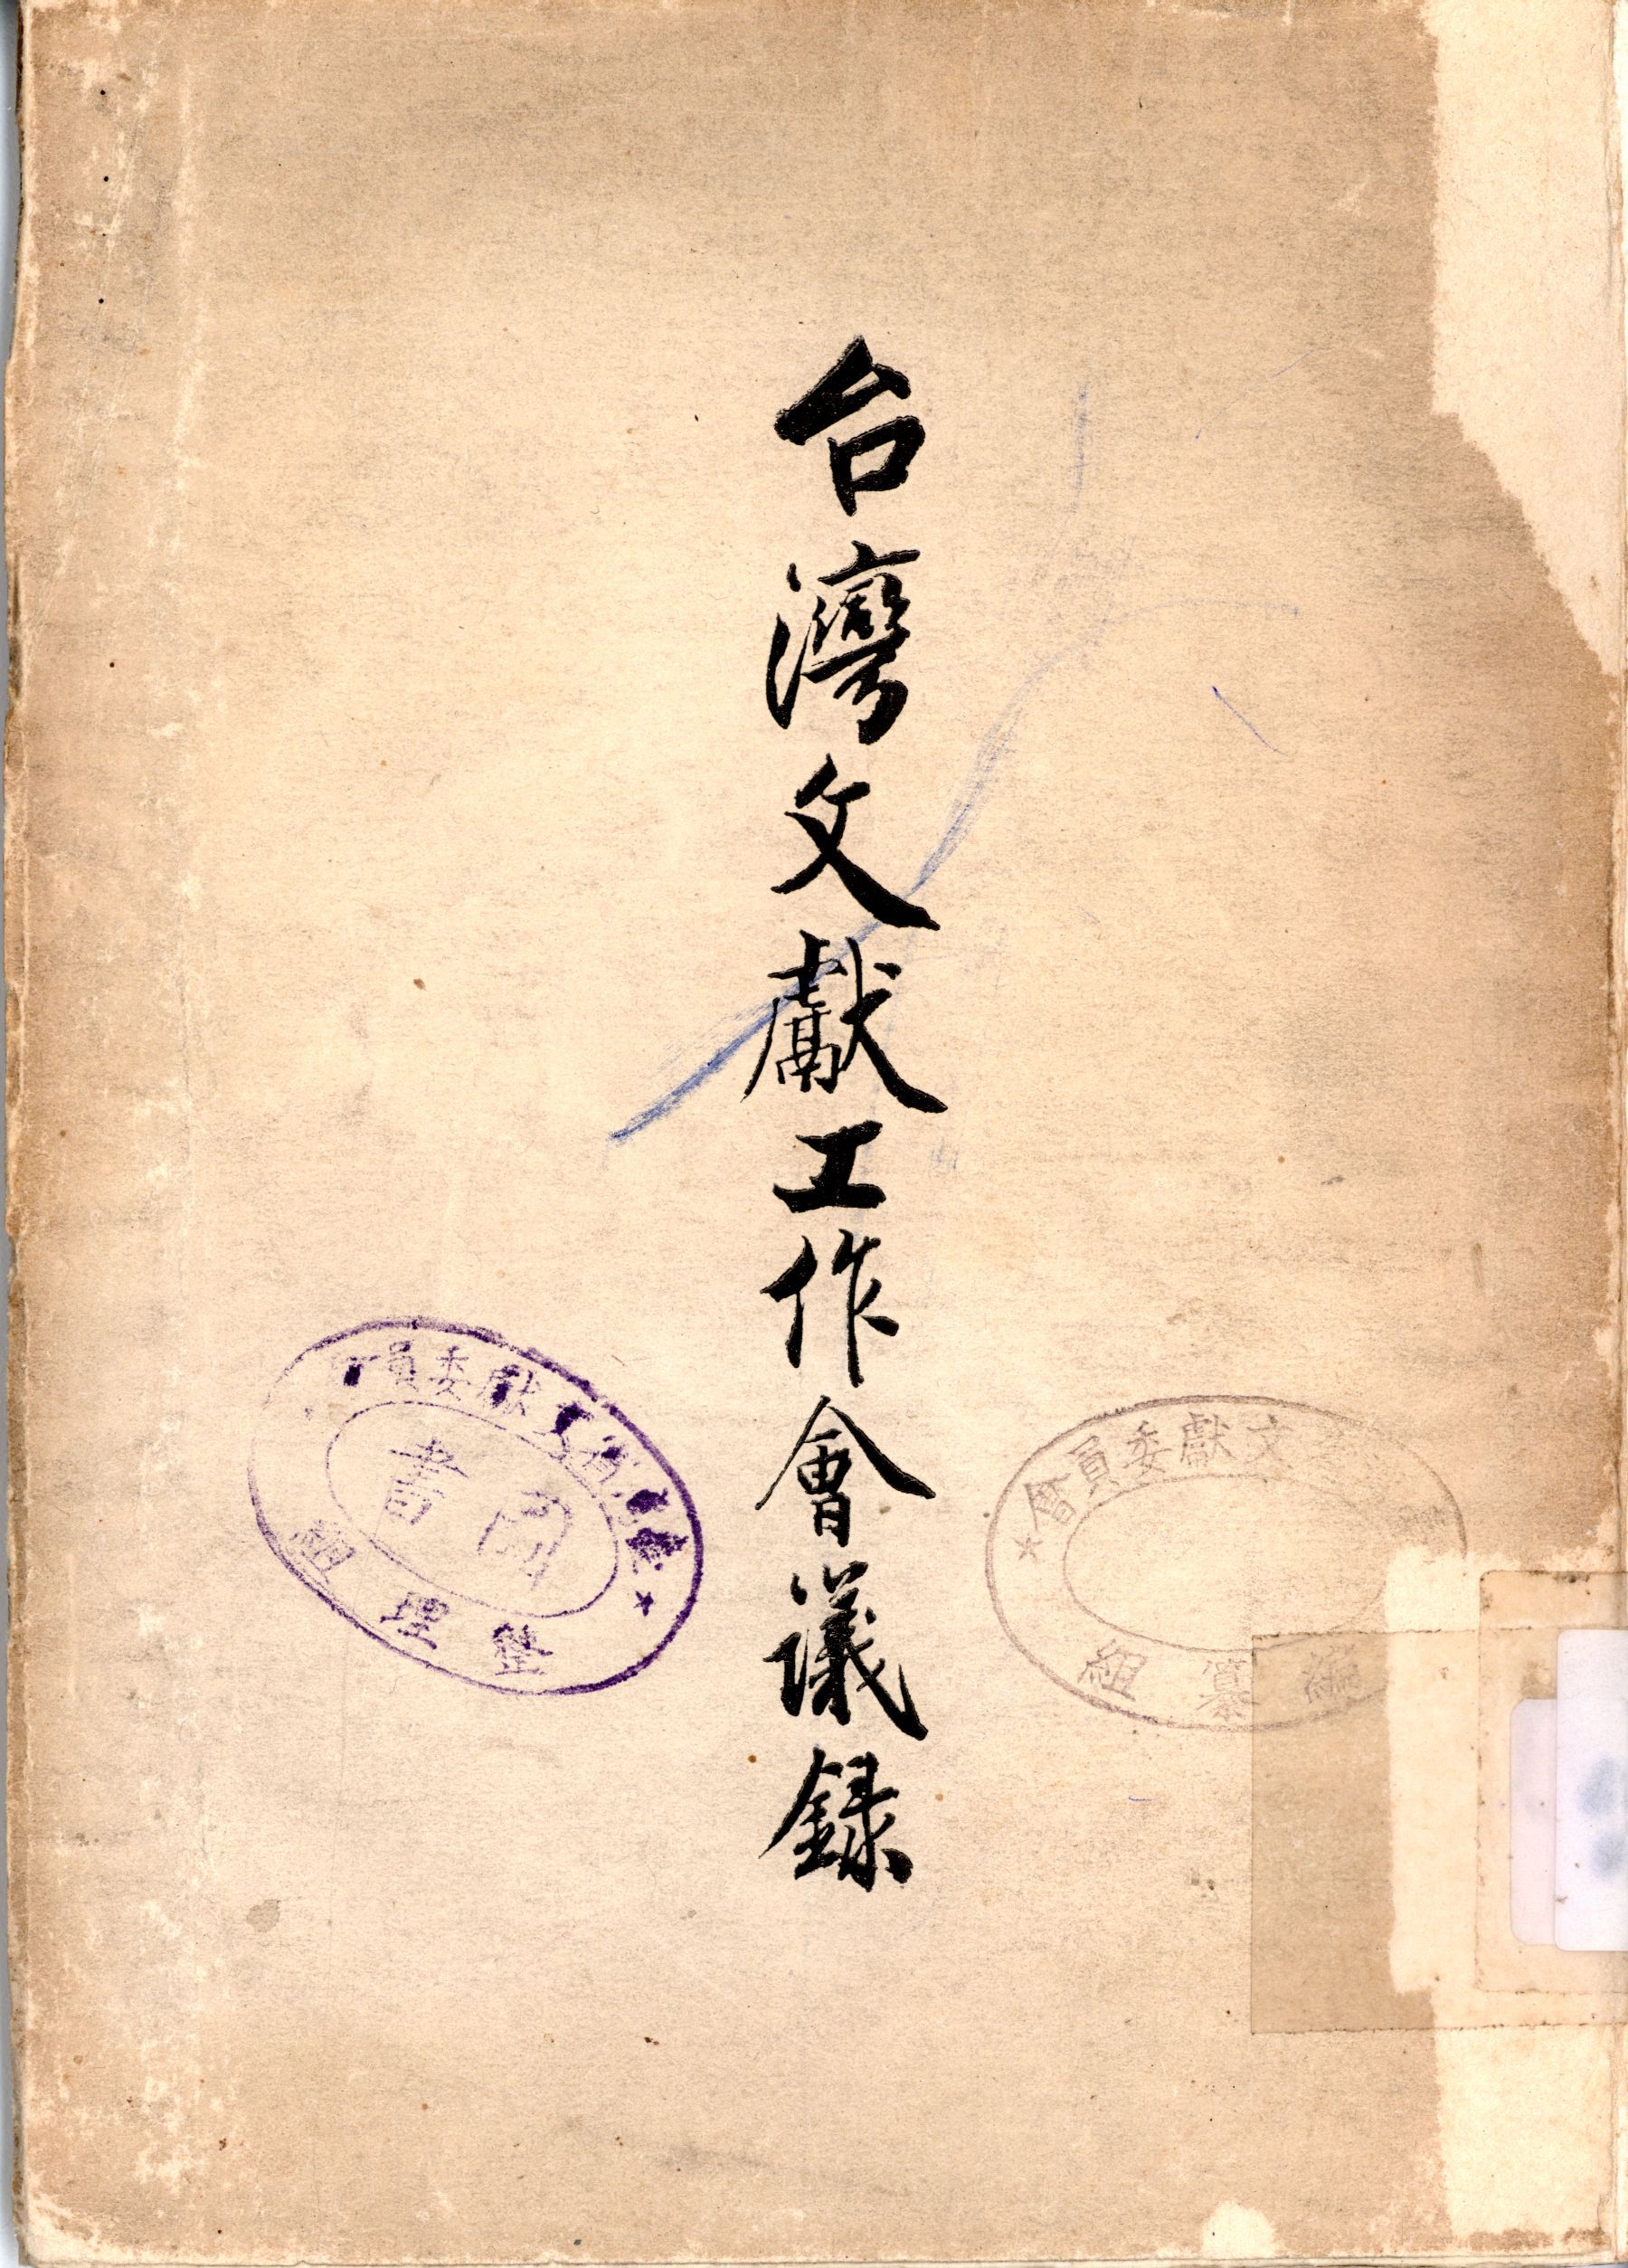 台灣文獻工作會議録
臺灣省文獻委員會
圖書
整理組
文獻委員會
編纂組